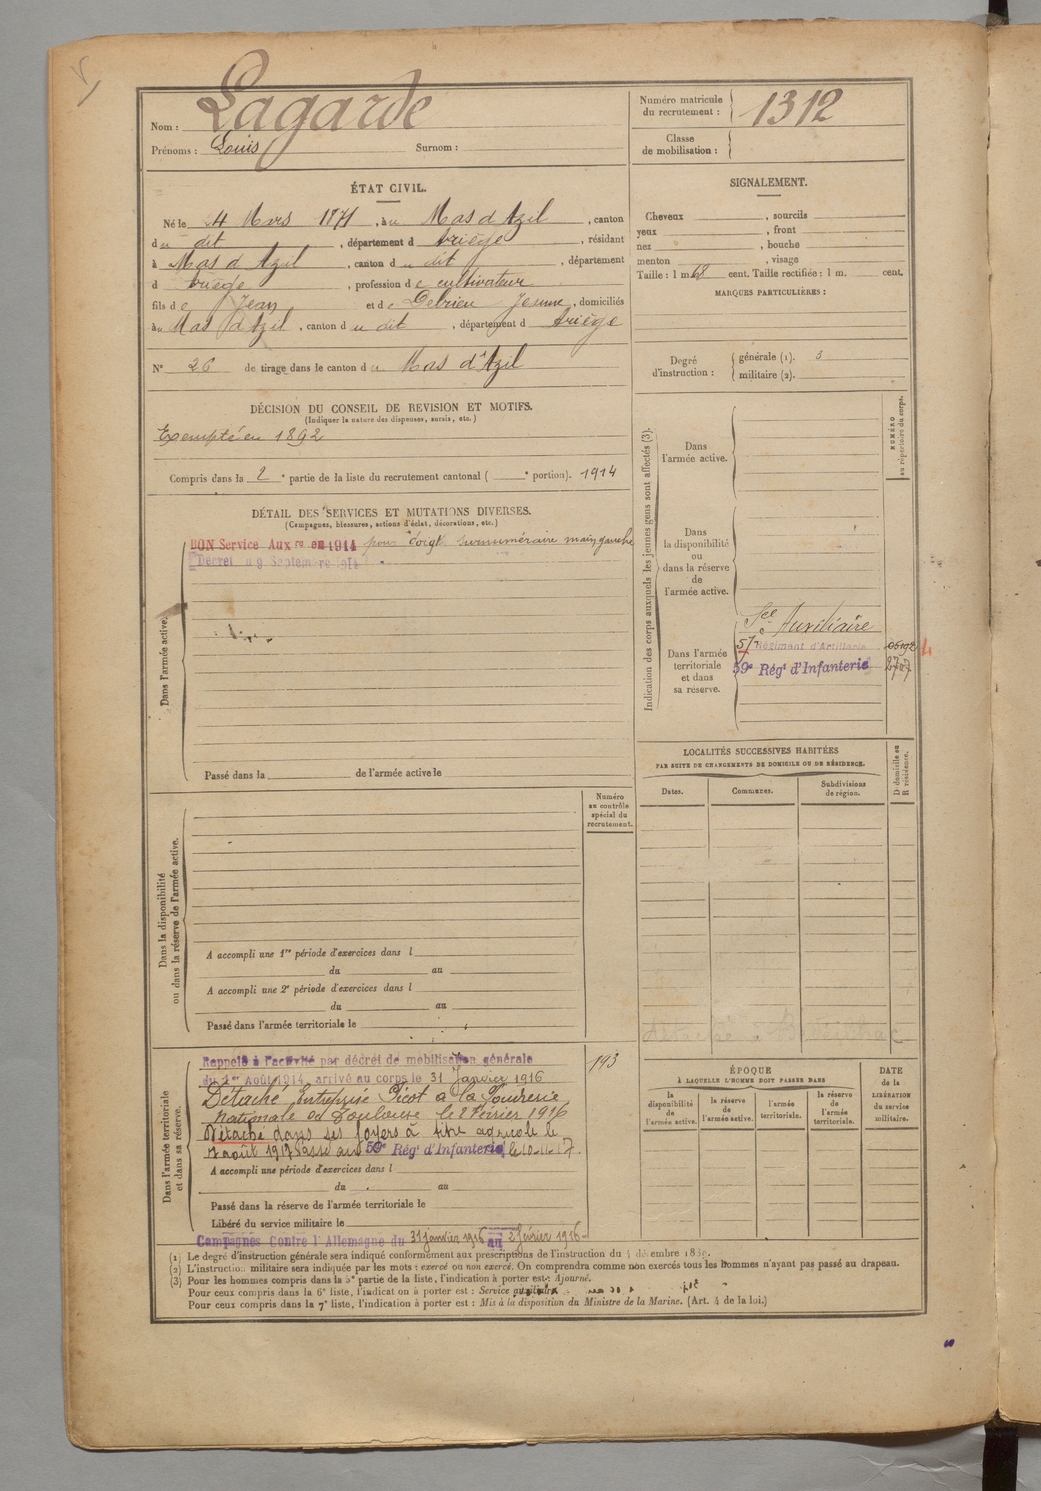 Nom : Lagarde
Prénoms : Louis Surnom :
Numéro matricule du recrutement : 1312
Classe de mobilisation :
ÉTAT CIVIL.
Né le 24 Mars 1871, à u Mas d'Azil, canton
du dit, département d Ariège, résidant
à Mas d'Azil, canton du dit, département
d Ariège, profession de cultivateur
fils de Jean et de Debrieu Jeanne, domiciliés
à u Mas d'Azil, canton du dit, département d Ariège
N° 26 de tirage dans le canton du Mas d'Azil
SIGNALEMENT.
Cheveux , sourcils
yeux , front
nez , bouche
menton , visage
Taille : 1 m. 68 cent. Taille rectifiée : 1 m. cent.
MARQUES PARTICULIÈRES :
Degré d'instruction : générale (1). 3
militaire (2).
DÉCISION DU CONSEIL DE REVISION ET MOTIFS.
(Indiquer la nature des dispenses, sursis, etc.)
Exempté en 1892
Compris dans la 2e partie de la liste du recrutement cantonal ( e portion). 1914
DÉTAIL DES SERVICES ET MUTATIONS DIVERSES.
(Campagnes, blessures, actions d'éclat, décorations, etc.)
BON Service Auxre en 1914 pour doigt surnuméraire main gauche
Décret du 9 Septembre 1914
Dans l'armée active.
Passé dans la de l'armée active le
Indication des corps auxquels les jeunes gens sont affectés (3).
NUMÉRO au répertoire du corps.
Dans l'armée active.
Dans la disponibilité ou dans la réserve de l'armée active.
Dans l'armée territoriale et dans sa réserve.
Sce Auxiliaire
57e Régiment d'Artillerie
59e Régt d'Infanterie
LOCALITÉS SUCCESSIVES HABITÉES
PAR SUITE DE CHANGEMENTS DE DOMICILE OU DE RÉSIDENCE.
Dates. Communes. Subdivisions de région. D domicile ou R résidence.
Numéro au contrôle spécial du recrutement.
Dans la disponibilité ou dans la réserve de l'armée active.
A accompli une 1re période d'exercices dans l
du au
A accompli une 2e période d'exercices dans l
du au
Passé dans l'armée territoriale le
Dans l'armée territoriale et dans sa réserve.
Rappelé à l'activité par décret de mobilisation générale 193
du 1er Août 1914, arrivé au corps le 31 Janvier 1916
Détaché Entreprise Picot à la Poudrerie
Nationale de Toulouse le 2 Février 1916
Détaché dans ses foyers à titre agricole le
août 1917 Passé au 59e Régt d'Infanterie, le 10-11-17.
A accompli une période d'exercices dans l
du au
Passé dans la réserve de l'armée territoriale le
Libéré du service militaire le
Campagnes Contre l'Allemagne du 31 janvier 1916 au 2 février 1916
ÉPOQUE
À LAQUELLE L'HOMME DOIT PASSER DANS
la disponibilité de l'armée active. la réserve de l'armée active. l'armée territoriale. la réserve de l'armée territoriale.
DATE de la LIBÉRATION du service militaire.
(1) Le degré d'instruction générale sera indiqué conformément aux prescriptions de l'instruction du 4 décembre 1889.
(2) L'instruction militaire sera indiquée par les mots : exercé ou non exercé. On comprendra comme non exercés tous les hommes n'ayant pas passé au drapeau.
(3) Pour les hommes compris dans la 5e partie de la liste, l'indication à porter est : Ajourné.
Pour ceux compris dans la 6e liste, l'indication à porter est : Service auxiliaire
Pour ceux compris dans la 7e liste, l'indication à porter est : Mis à la disposition du Ministre de la Marine. (Art. 4 de la loi.)